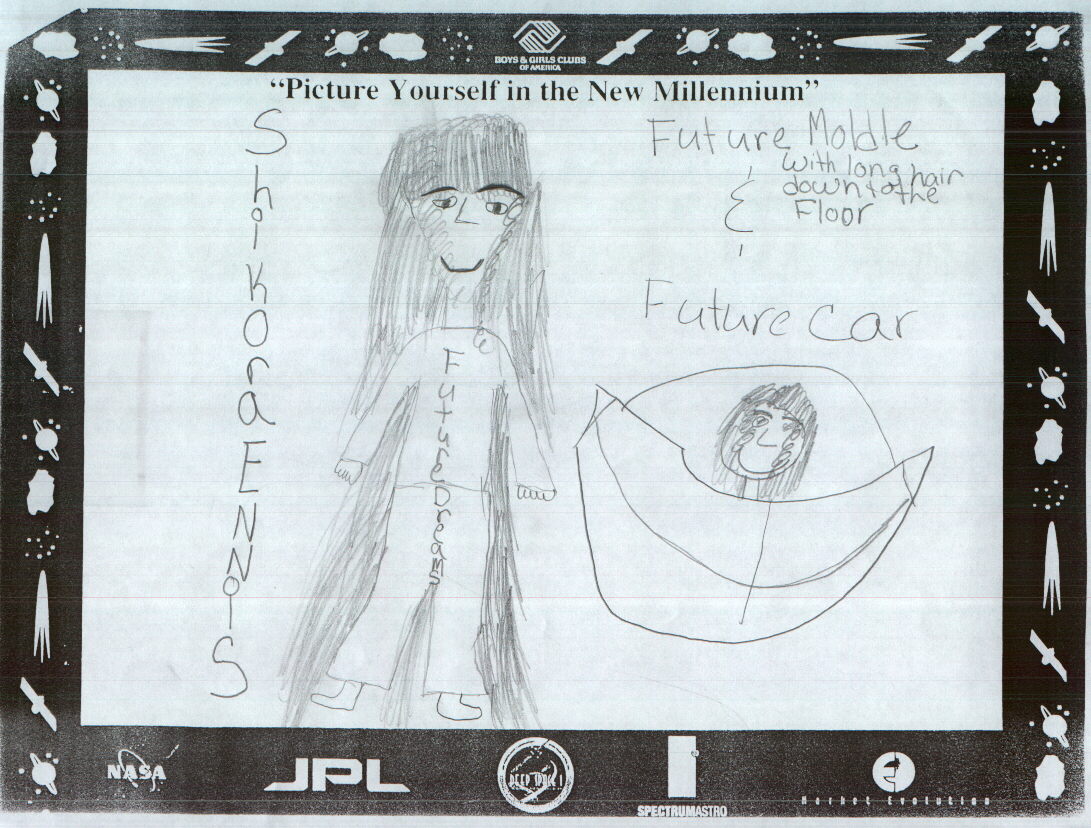 BOYS & GIRLS CLUBS
OF AMERICA
“Picture Yourself in the New Millennium”
ShiKOraENNiS
Future Moldle
with long hair
down to the
Floor
&
Future car
FutureDreams
NASA
JPL
DEEP SPACE 1
SPECTRUMASTRO
Market Evolution